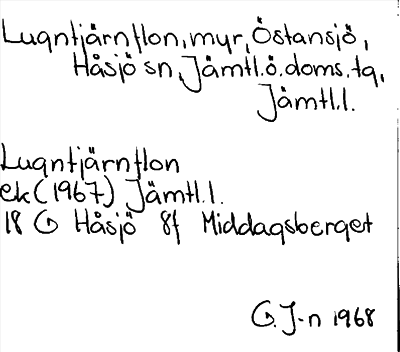 Lugntjärnflon, myr, Östansjö,
Håsjö sn, Jämtl.ö.doms.tg,
Jämtl.l.
Lugntjärnflon
ek (1967) Jämtl.l.
18 G Håsjö 8f Middagsberget
G. J-n 1968